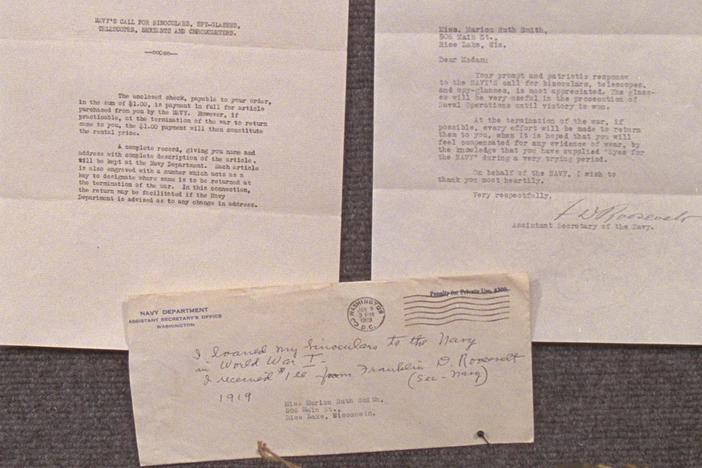 NAVY'S CALL FOR BINOCULARS, SPY-GLASSES,
TELESCOPES, SEXTANTS AND CHRONOMETERS.
The enclosed check, payable to your order,
in the sum of $1.00, is payment in full for article
purchased from you by the NAVY. However, if
practicable, at the termination of the war to return
same to you, the $1.00 payment will then constitute
the rental price.
A complete record, giving you name and
address with complete description of the article,
will be kept at the Navy Department. Each article
is also engraved with a number which acts as a
key to designate where same is to be returned at
the termination of the war. In this connection,
the return may be facilitated if the Navy
Department is advised as to any change in address.
Miss. Marion Ruth Smith,
505 Main St.,
Rice Lake, Wis.
Dear Madam:
Your prompt and patriotic response
to the NAVY'S call for binoculars, telescopes,
and spy-glasses, is most appreciated. The glass-
es will be very useful in the prosecution of
Naval Operations until victory is won.
At the termination of the war, if
possible, every effort will be made to return
them to you, when it is hoped that you will
feel compensated for any evidence of wear, by
the knowledge that you have supplied "Eyes for
the NAVY" during a very trying period.
On behalf of the NAVY, I wish to
thank you most heartily.
Very respectfully,
F D Roosevelt
Assistant Secretary of the Navy.
NAVY DEPARTMENT
ASSISTANT SECRETARY'S OFFICE
WASHINGTON
WASHINGTON
D.C.
Penalty for Private Use, $300.
I loaned my binoculars to the Navy
in World War I-
I received $1.00 from Franklin D. Roosevelt
(Sec - Navy)
1919
Miss Marion Ruth Smith,
505 Main St.,
Rice Lake, Wisconsin.